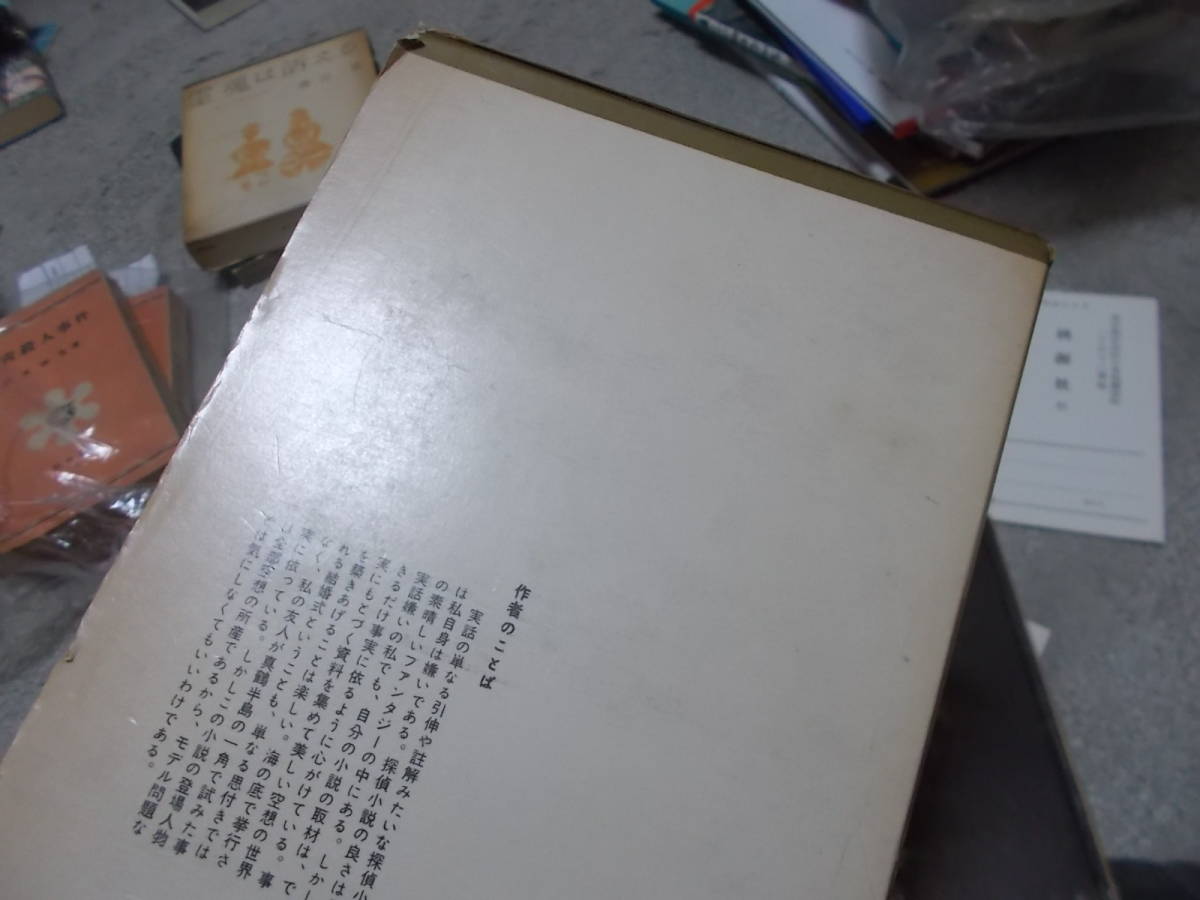 作者のことば
実話の単なる引伸や註解みたいな探偵小
は私自身は嫌いである。探偵小説の良さは
の素晴しいファンタジーの中にある。しかし
実話嫌いの私でも、自分の小説の取材は、で
きるだけ事実に依るように心がけている。事
実にもとづく資料を集めて美しい空想の世界
を築きあげることは楽しい。海の底で挙行さ
れる結婚式ということも、単なる思付きでは
なく、私の友人が真鶴半島の一角で試みた事
実に依っている。しかしこの小説の登場人物
は全部空想の所産であるから、モデル問題な
は気にしなくてもいいわけである。
殺人事件